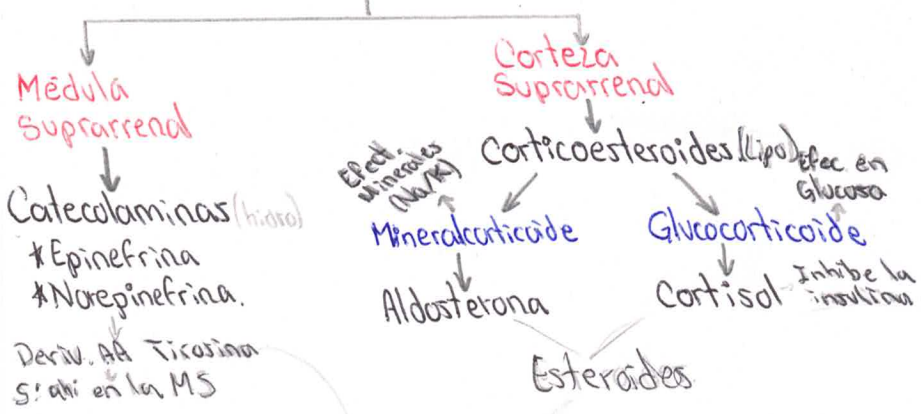 Médula
Suprarrenal
Catecolaminas (hidro)
*Epinefrina
*Norepinefrina.
Deriv. AA Tirosina
S! ahi en la MS
Corteza
Suprarrenal
Corticoesteroides (Lipo)
Efect.
Minerales
(Na/K)
Mineralcorticoide
Aldosterona
Efec. en
Glucosa
Glucocorticoide
Cortisol
Inhibe la
Esteroides